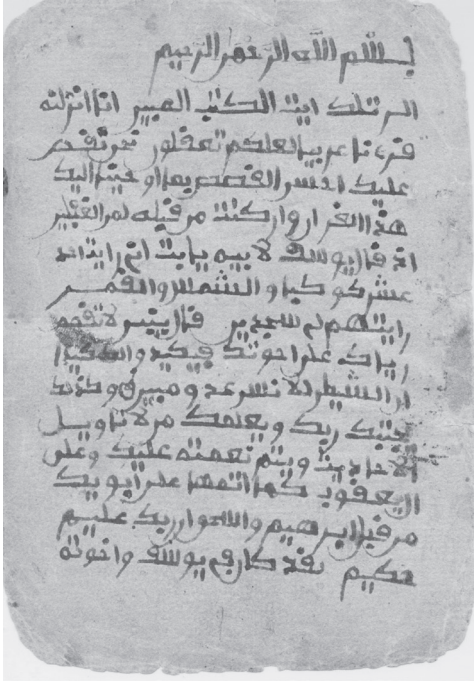 بسم الله الرحمن الرحيم
الر تلك ايت الكتب المبين انا انزلنه
قرءنا عربيا لعلكم تعقلون نحن نقص
عليك احسن القصص بما اوحينا اليك
هذا القران وان كنت من قبله لمن الغفلين
اذ قال يوسف لابيه يابت اني رايت احد
عشر كوكبا والشمس والقمر
رايتهم لي سجدين قال يبني لا تقصص
رءياك على اخوتك فيكيدوا لك كيدا
ان الشيطن للانسن عدو مبين وكذلك
يجتبيك ربك ويعلمك من تاويل
الاحاديث ويتم نعمته عليك وعلى
ال يعقوب كما اتمها على ابويك
من قبل ابرهيم واسحق ان ربك عليم
حكيم لقد كان في يوسف واخوته